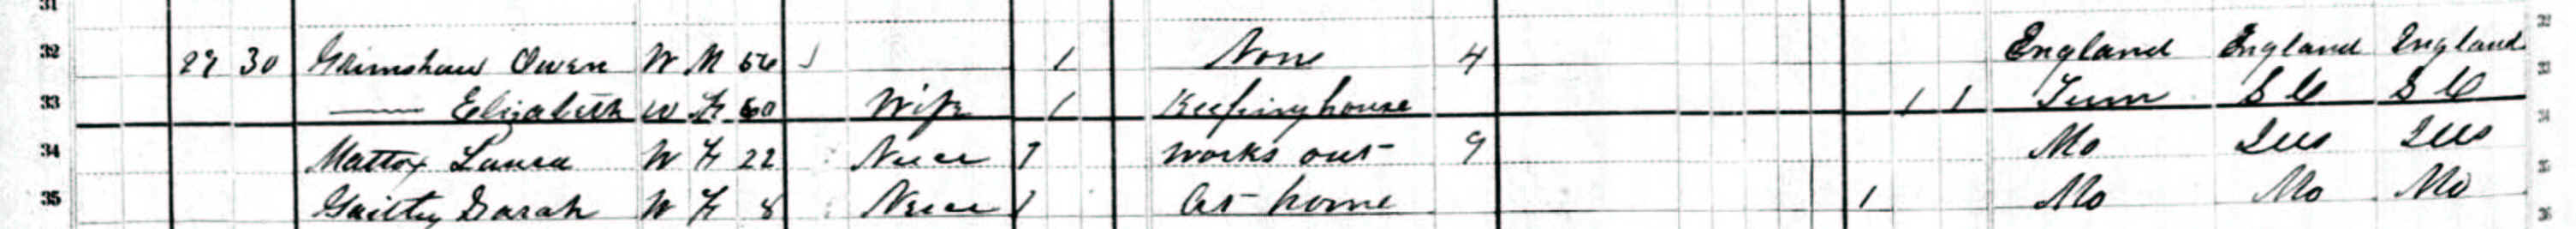 32 29 30 Grimshaw Owen W M 56 1 None 4 England England England
33 —— Elizabeth W F 60 Wife 1 Keeping house 1 1 Tenn S C S C
34 Mattox Laura W F 22 Niece 1 Works out 9 Mo Ills Ills
35 Sarah W F 8 Niece 1 At home 1 Mo Mo Mo